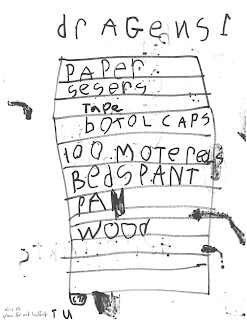 drAGENS1
PAPer
sesers
TaPe
bOTOL CAPS
100 MOTereds
BedsPANT
PA
WOOd
TU